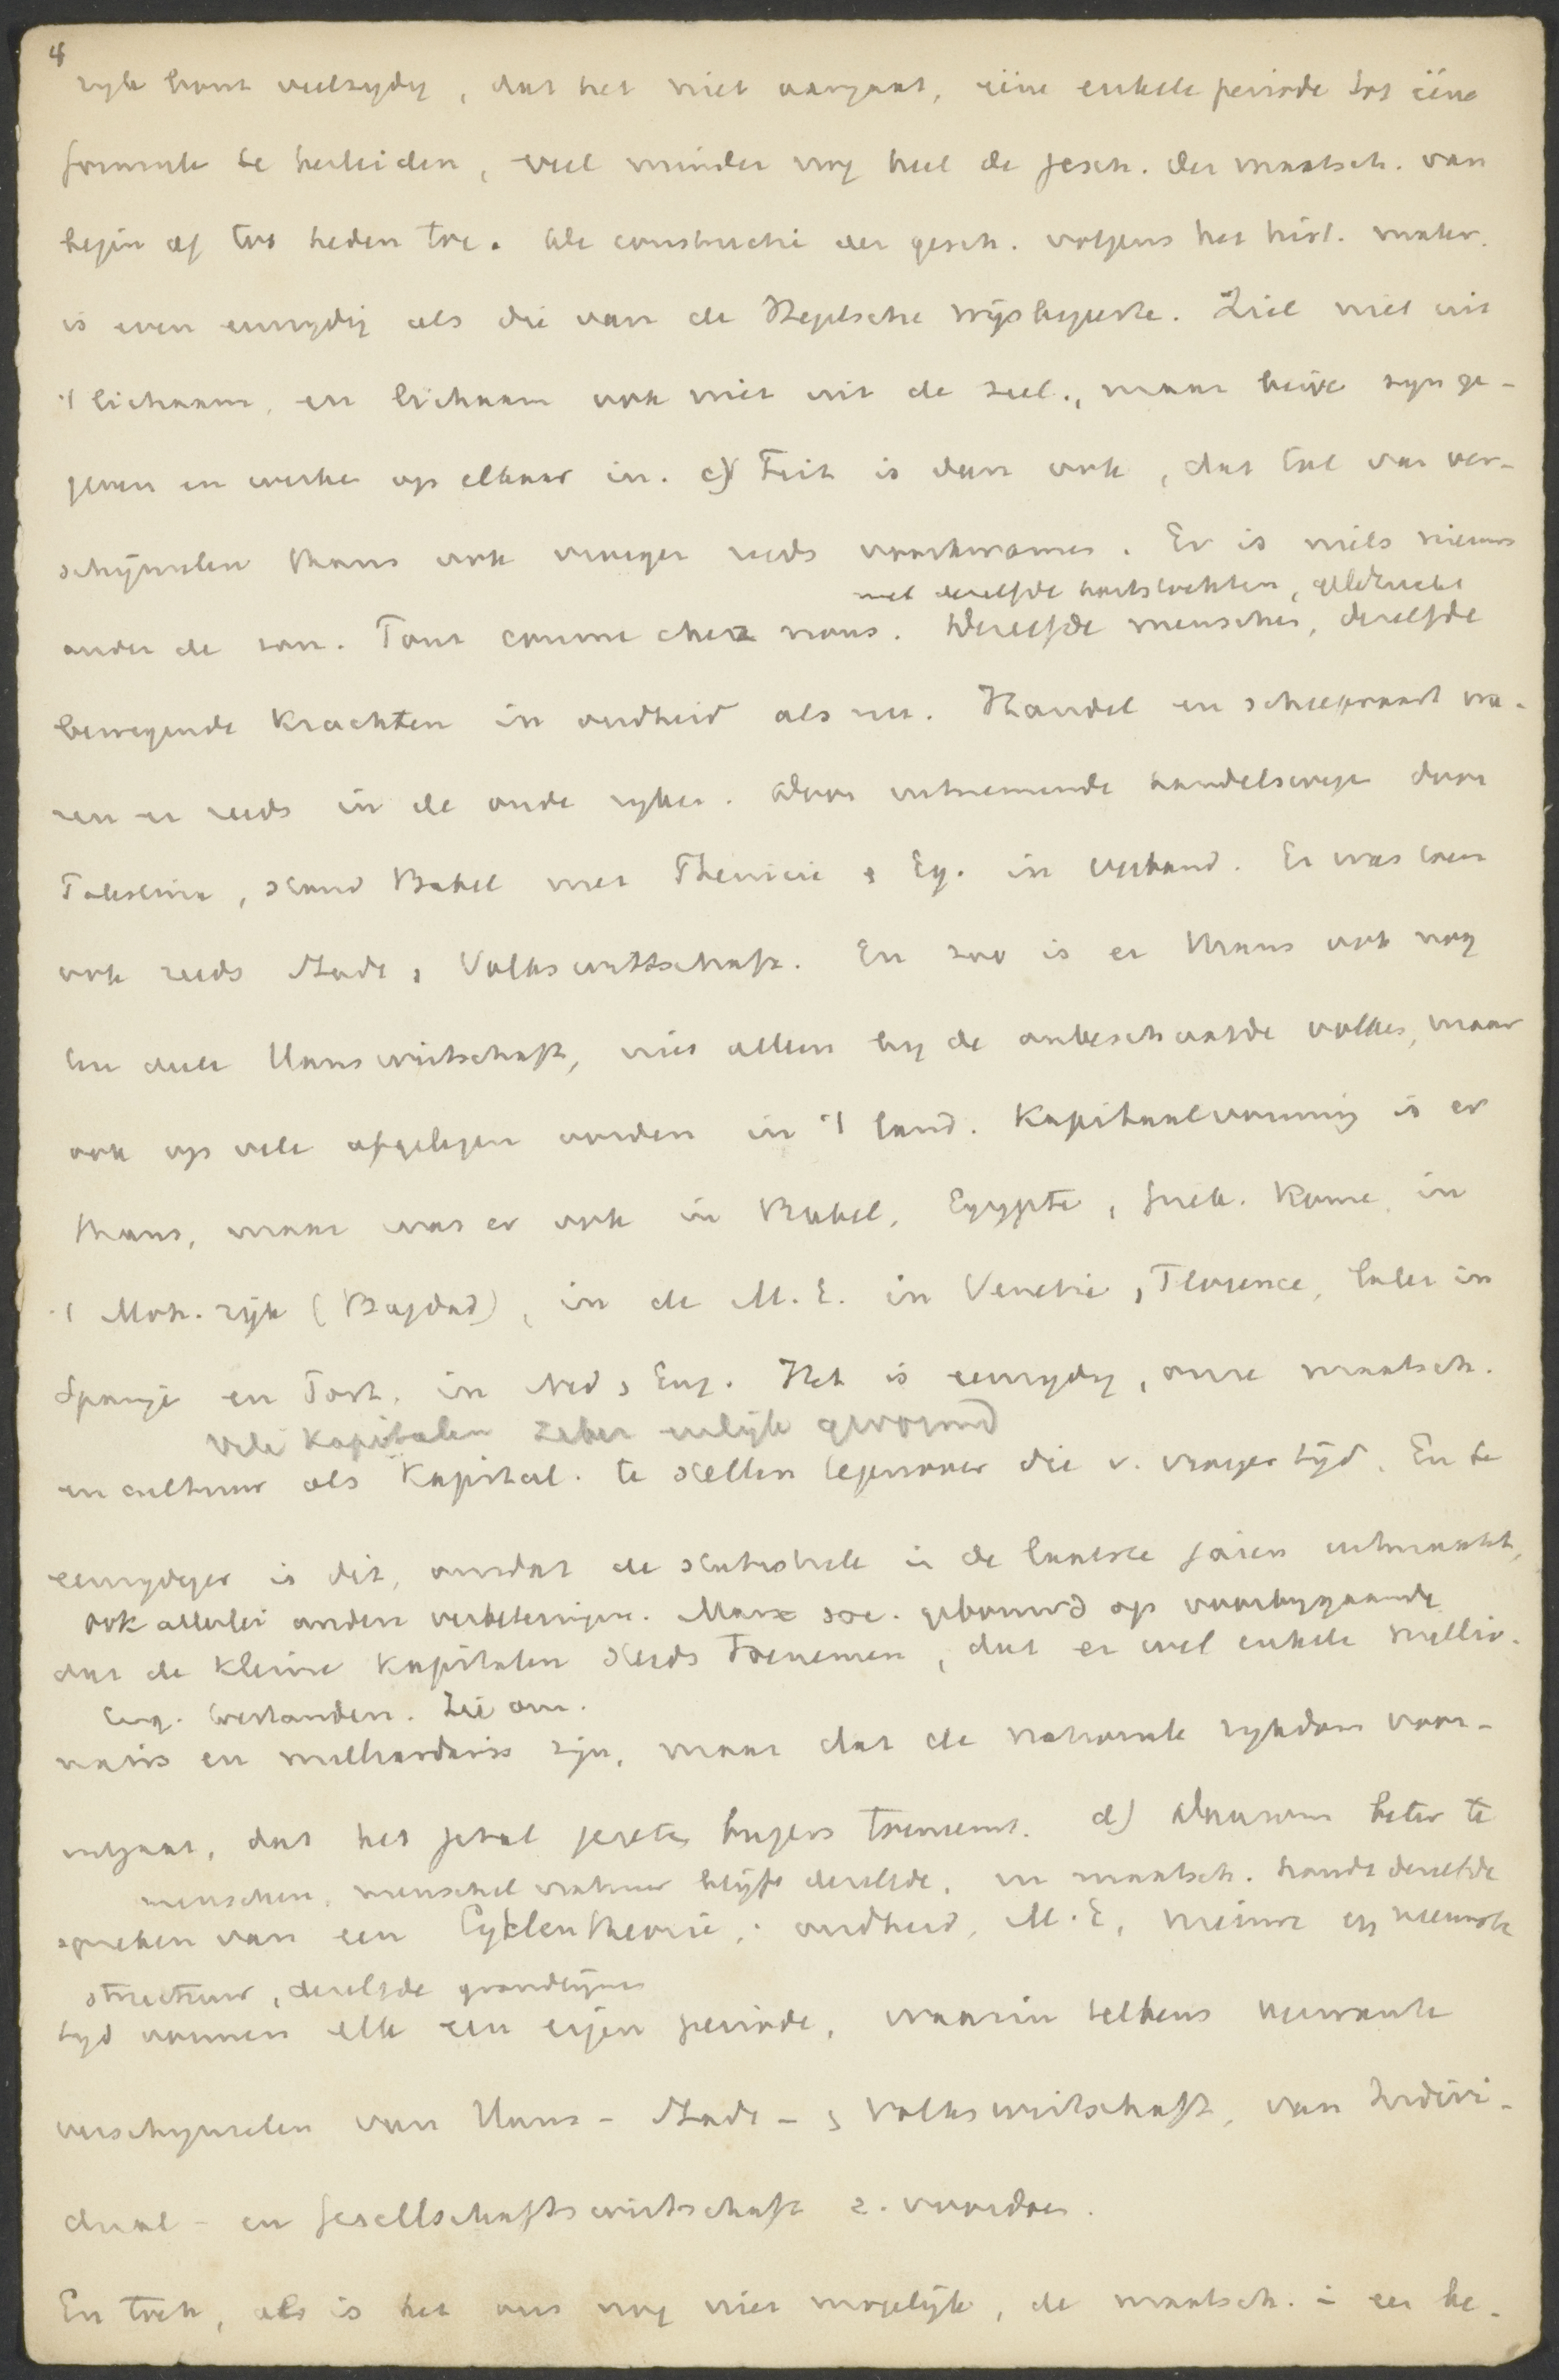 4
rijk bont veelzydig, dat het niet aangaat, eéne enkele periode tot eéne
formule te herleiden, veel minder nog heel de gesch. der maatsch. van
begin af tot heden toe. De constructie der gesch. volgens het hist. mater.
is even eenzydig als die van de Hegelsche wijsbegeerte. Ziel niet uit
't lichaam, en lichaam ook niet uit de ziel, maar beide zyn ge-
geven en werken op elkaar in. c) Feit is dan ook, dat tal van ver-
schijnselen thans ook vroeger reeds voorkwamen. Er is niets nieuws
met dezelfde hartstochten, gelijk
onder de zon. Tout comme chez nous. Dezelfde menschen, dezelfde
bewegende krachten in oudheid als nu. Handel en scheepvaart wa-
ren er reeds in de oude ryken. Door uitnemende handelswegen door
Palestina, stond Babel met Phenicie & Eg. in verband. Er was toen
ook reeds Stadt, Volkswirtschaft. En zoo is er thans ook nog
ten deele Hauswirtschaft, niet alleen by de onbeschaafde volken, maar
ook op vele afgelegen oorden in 't land. Kapitaalvorming is er
thans, maar was er ook in Babel, Egypte, Griek. Rome, in
't Moh. rijk (Bagdad), in de M.E. in Venetie, Florence, later in
Spanje en Port. in Ned & Eng. Het is eenzydig, onze maatsch.
Vele kapitalen zeker eerlijk gevormd
en cultuur als kapital. te stellen tegenover die v. vroeger tijd. En te
eenzydiger is dit, omdat de statistiek in de laatste jaren uitmaakt,
ook allerlei andere verbeteringen. Marx soc. gebouwd op voorbygaande
dat de kleine kapitalen steeds toenemen, dat er wel enkele millio-
Eng. toestanden. Zie om.
nairs en milliardairs zijn, maar dat de nationale rykdom voor-
uitgaat, dat het getal gezeten burgers toeneemt. d) Daarom beter te
menschen, menschel. natuur blijft dezelfde, en maatsch. houdt dezelfde
spreken van een Cyklentheorie; oudheid, M.E, nieuwe en nieuwste
structuur, dezelfde grondlijnen
tyd vormen elk een eigen periode, waarin telkens verwante
verschynselen van Haus- Stadt- & Volkswirtschaft, van Indivi-
dual- en Gesellschaftswirtschaft z. voordoen.
En toch, als is het ons nog niet mogelijk, de maatsch. in een be-